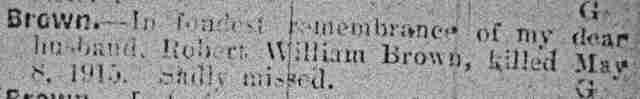 G.
Brown.—In fondest remembrance of my dear
husband, Robert William Brown, killed May
8, 1915. Sadly missed.
G
Brown